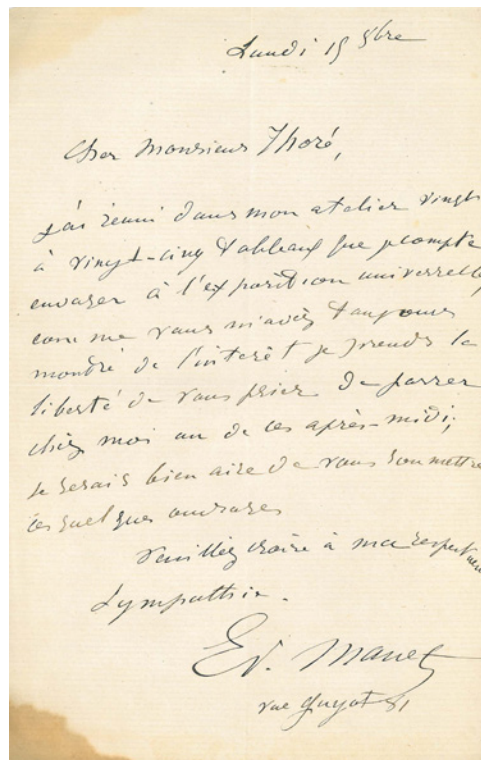 Lundi 15 9bre
Cher Monsieur Thoré,
j'ai réuni dans mon atelier vingt
à vingt-cinq tableaux que je compte
envoyer à l'exposition universelle
comme vous m'avez toujours
montré de l'intérêt je prends la
liberté de vous prier de passer
chez moi un de ces après-midi;
je serais bien aise de vous soumettre
ces quelques ouvrages
Veuillez croire à ma respectueuse
sympathie.
Ed. Manet
rue Guyot 81